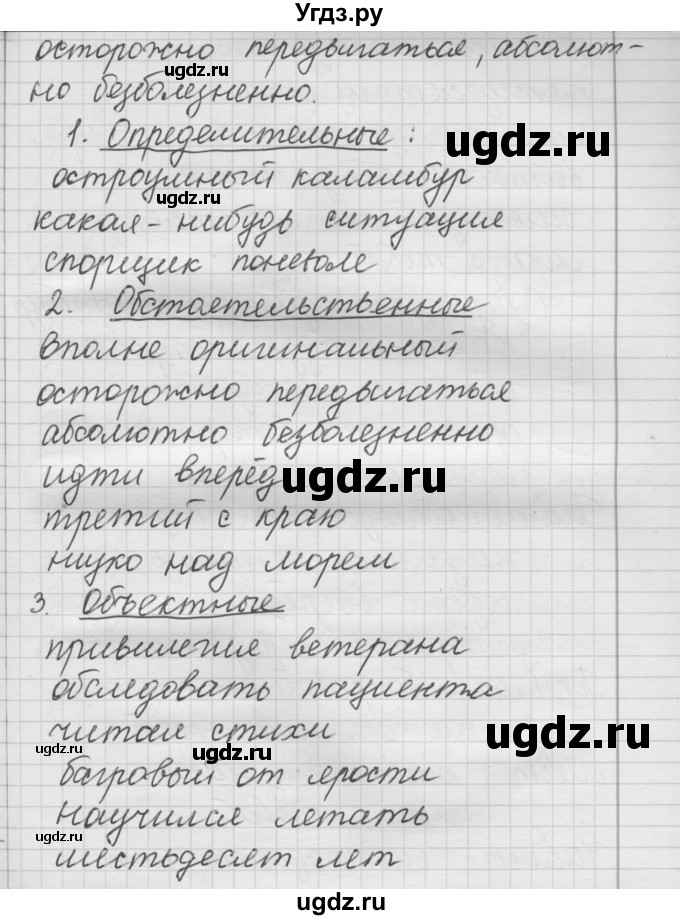 Угдз.ру
осторожно передвигаться, абсолют-
но безболезненно.
1. Определительные:
остроумный каламбур
какая-нибудь ситуация
спорщик поневоле
2. Обстоятельственные
вполне оригинальный
осторожно передвигаться
абсолютно безболезненно
идти вперёд
третий с краю
низко над морем
3. Объектные
привилегия ветерана
обследовать пациента
читая стихи
багровый от ярости
научился летать
шестьдесят лет
ugdz.ru
ugdz.ru
ugdz.ru
ugdz.ru
ugdz.ru
ugdz.ru
ugdz.ru
ugdz.ru
ugdz.ru
ugdz.ru
ugdz.ru